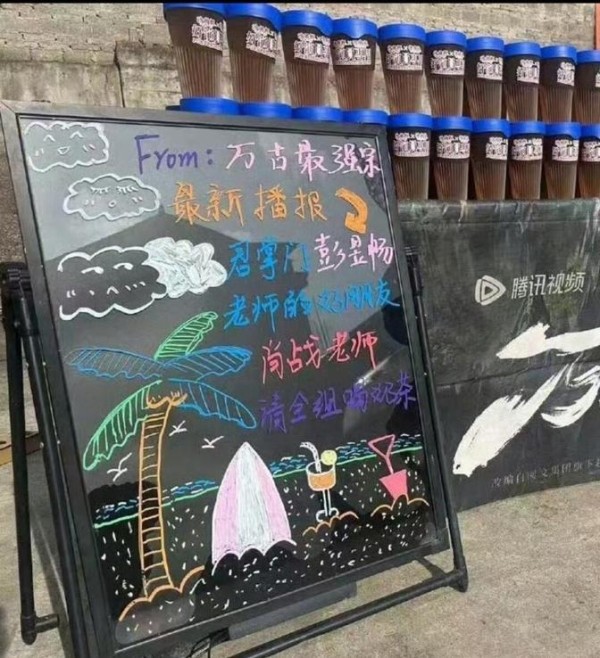 From: 万古最强宗
最新播报
君掌门彭昱畅
老师的好朋友
肖战老师
请全组喝奶茶
腾讯视频